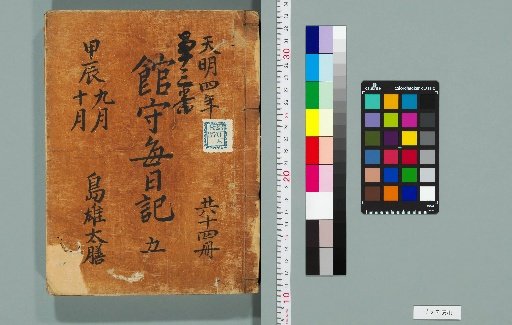 天明四年
共十四冊
館守毎日記 五
甲辰 九月
十月
島雄太膳
colorchecker CLASSIC
30
20
10